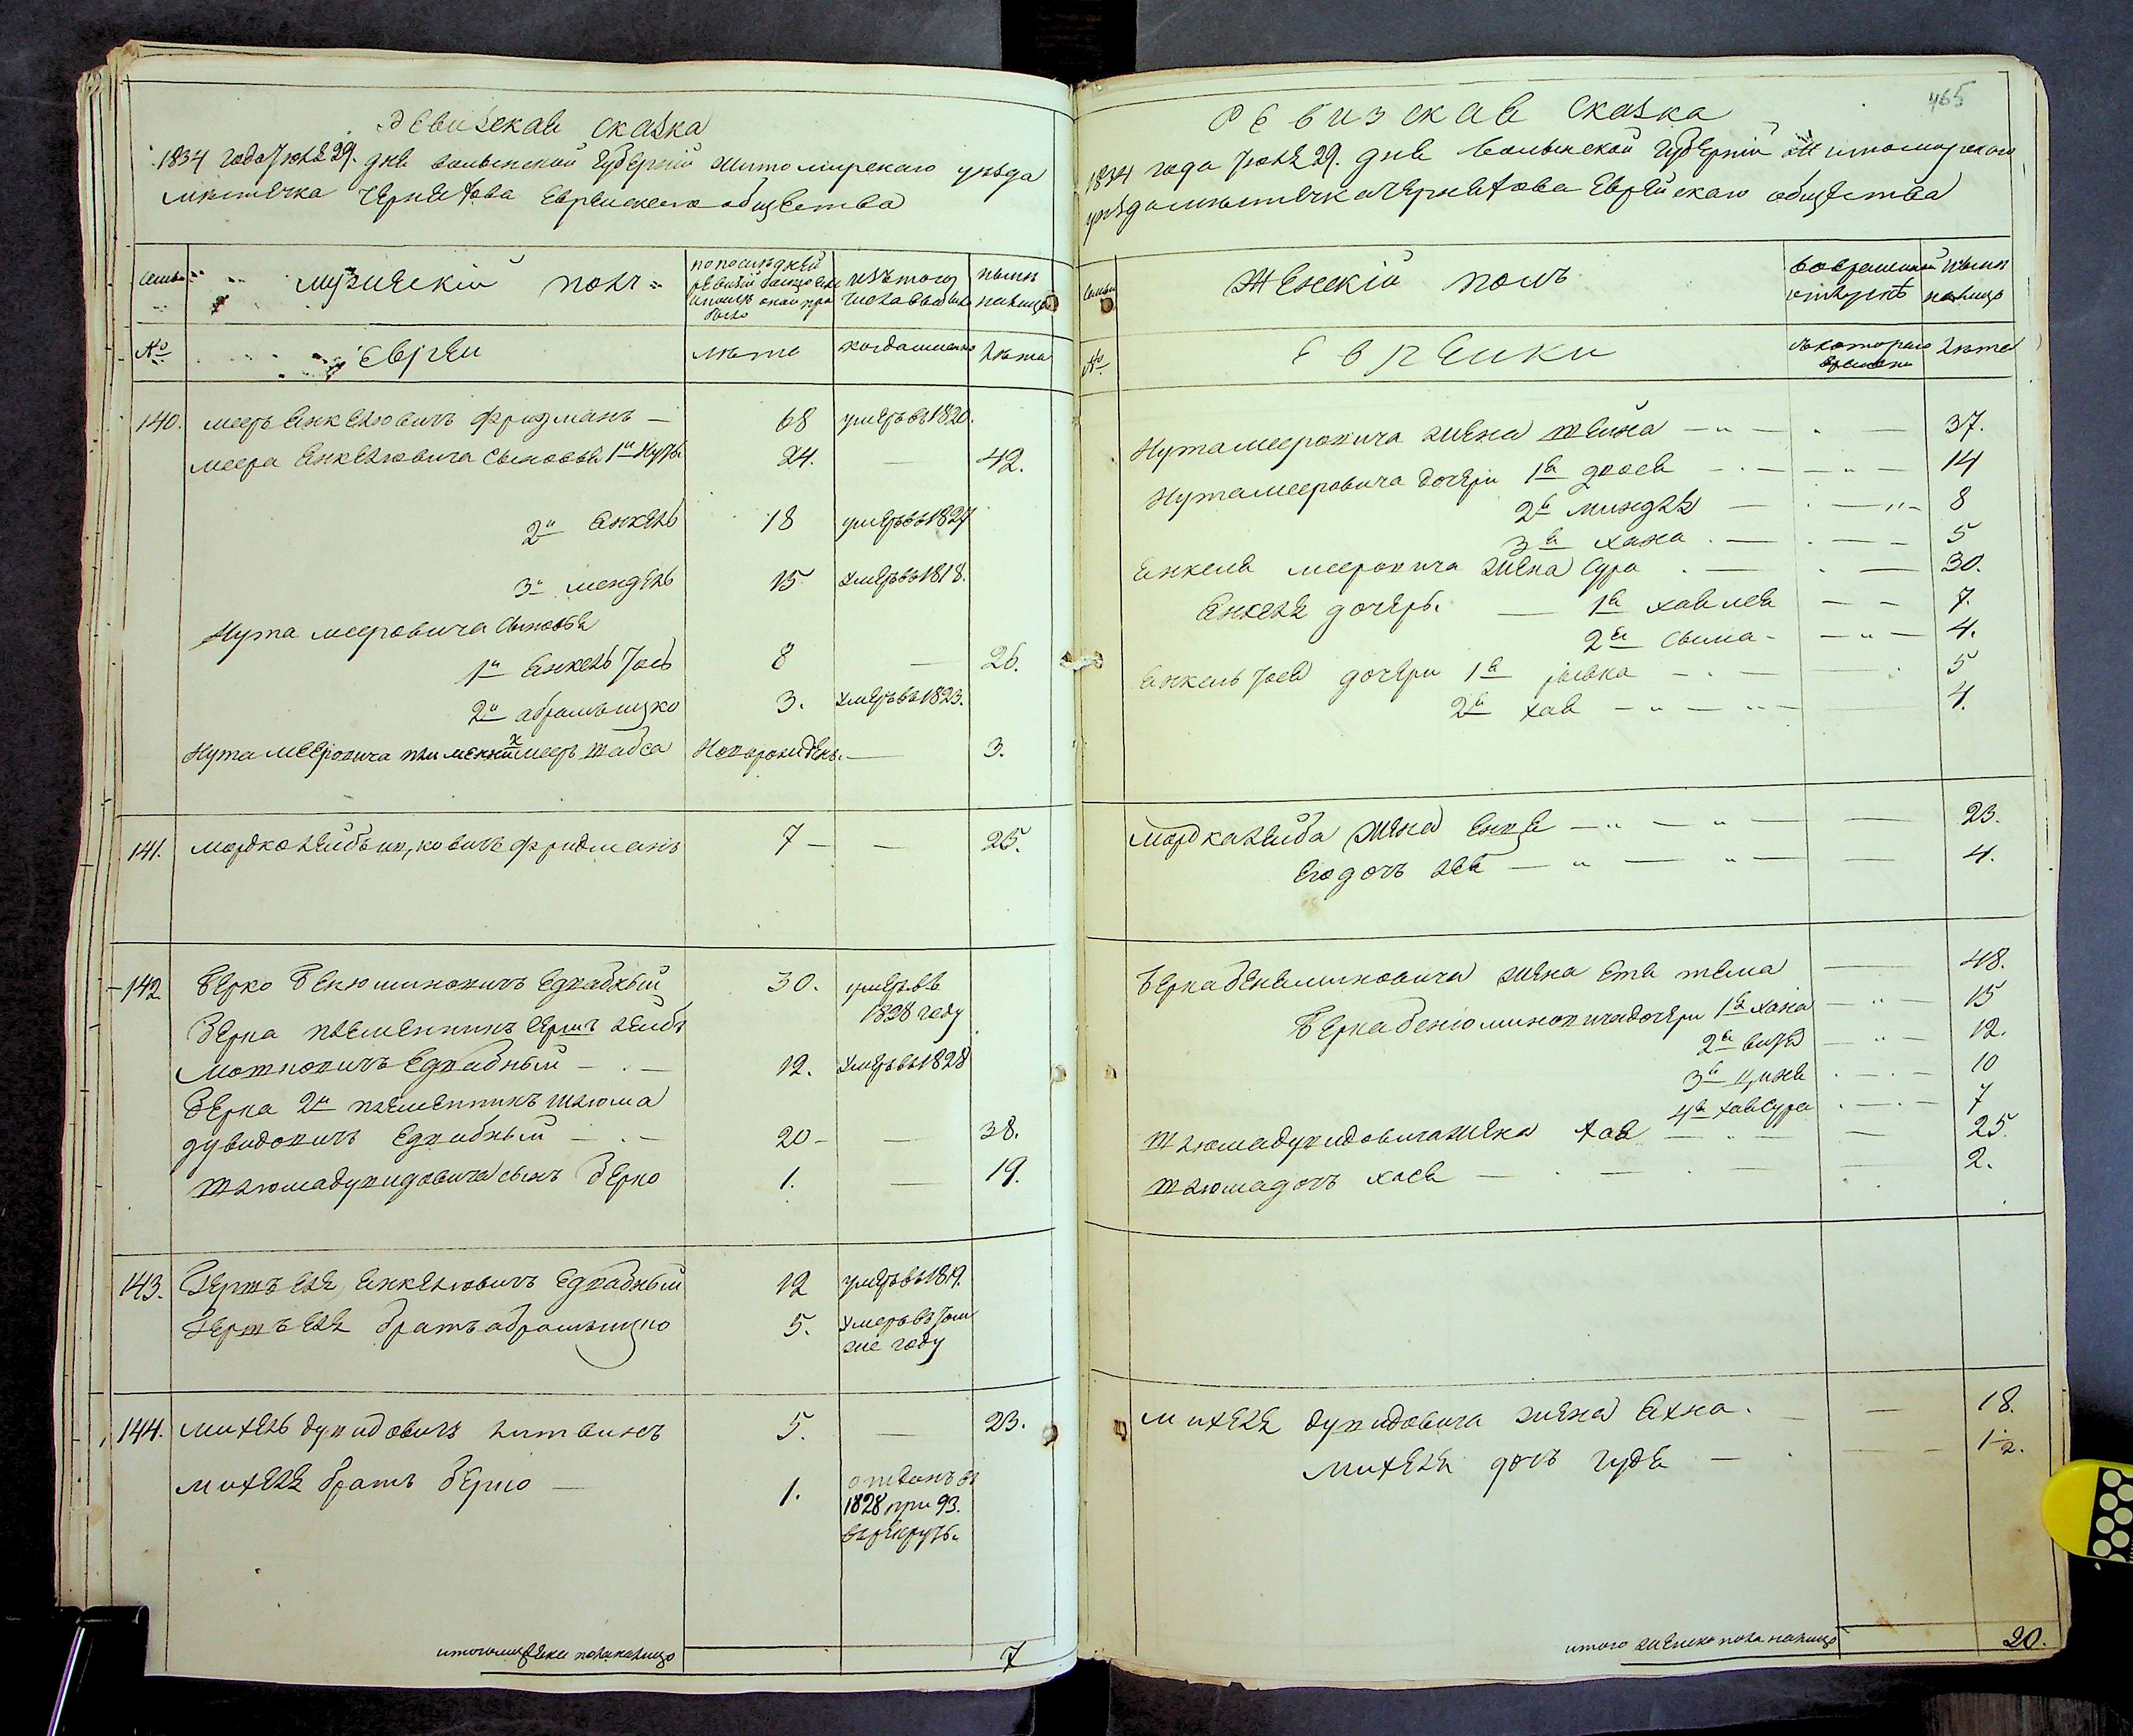 Ревизская сказка
1834 года Июля 29. дня волынской губернии житомирскаго уезда
местечка Чернехова Еврейскаго общества
семьи
мужеский полъ
по последней ревизии было
изъ того числа выбыло
ныне налицо
№
Евреи
лета
когда именно
лета
140. меер Янкелювичъ Фридманъ — 68 умеръ въ 1820.
меера Янкелювича сыновья 1й Нута 24. — 42.
2й Янкель 18 умеръ въ 1827
3й мендель 15 умеръ въ 1818.
Нута мееровича сыновья
1й Янкель Иось 8 — 26.
2й абрамъ ицко 3. умеръ въ 1823.
Нута мееровича племянникъ меер шабса Новорожденъ. — 3.
141. мордко лейбъ ицковичъ фридманъ 7 — — 25.
142 Берко Бенюминовичъ Едвабный 30. умеръ въ
1828 году
Берка племенникъ Герш лейбъ
мошковичъ Едвабный — 12. умеръ въ 1828
Берка 2й племенникъ шлюма
дувидовичъ Едвабный — 20 — — 38.
шлюма дувидовича сынъ Берко 1. — 19.
143. Гершъ Еля Янкелювичъ Едвабный 12 умеръ въ 1819.
Гершъ Еля братъ абрамъ ицко 5. умеръ въ том
же году
144. михель дувидовичъ литвинъ 5. — 23.
михеля братъ Берко — 1. отданъ въ
1828 при 93.
въ рекруты
итого мужска пола налицо 7
465
Ревизская сказка
1834 года Июля 29. дня Волынской губернии житомирскаго
уезда местечка Чернехова Еврейскаго общества
семьи
Женский полъ
во временной отлучке
ныне налицо
№
Еврейки
съ котораго времени
лета
Нута мееровича жена шейна — 37.
Нута мееровича дочери 1я двося — 14
2я миндля — 8
3я хана — 5
Янкеля мееровича жена сура — 30.
Янкеля дочери — 1я хая лея — 7.
2я сыма — 4.
Янкель Иося дочери 1я рывка — 5
2я хая — 4.
мордка лейба жена Енпя — 23.
Его дочь лея — 4.
Берка бенюминовича жена Етя тема — 48.
Берка бенюминовича дочери 1я хана — 15
2я — 12.
3я ципа — 10
4я хая сура — 7
шлюма дувидовича жена хая — 25.
шлюма дочь хася — 2.
михеля дувидовича жена Яхна. — 18.
михеля дочь гудя — 1/2.
итого женска пола налицо 20.